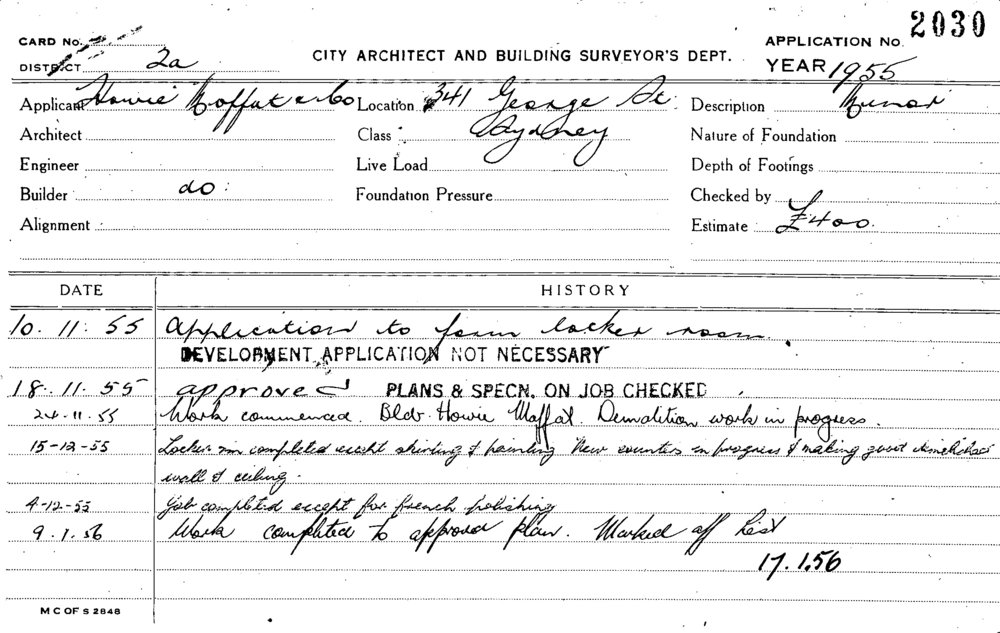 2030
CARD No.
APPLICATION No.
DISTRICT 2a
CITY ARCHITECT AND BUILDING SURVEYOR'S DEPT.
YEAR 1955
Applicant Howie Moffat & Co Location 341 George St. Description Minor
Architect Class Sydney Nature of Foundation
Engineer Live Load Depth of Footings
Builder do: Foundation Pressure Checked by
Alignment Estimate £400.
DATE HISTORY
10. 11. 55 Application to form locker room.
DEVELOPMENT APPLICATION NOT NECESSARY
18. 11. 55 approved PLANS & SPECN. ON JOB CHECKED
24-11-55 Work commenced. Bldr. Howie Moffat. Demolition work in progress.
15-12-55 Locker rm completed except skirting & painting New counters in progress & making good
wall & ceiling.
4-12-55 Job completed except for french polishing
9.1.56 Work completed to approved plan. Marked off list
17.1.56
M C OF S 2848